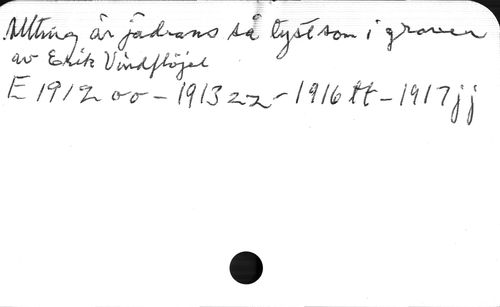 Allting är jädrans så tyst som i graven
av Erik Vindflöjel
E 1912 oo - 1913 zz - 1916 tt - 1917 jj